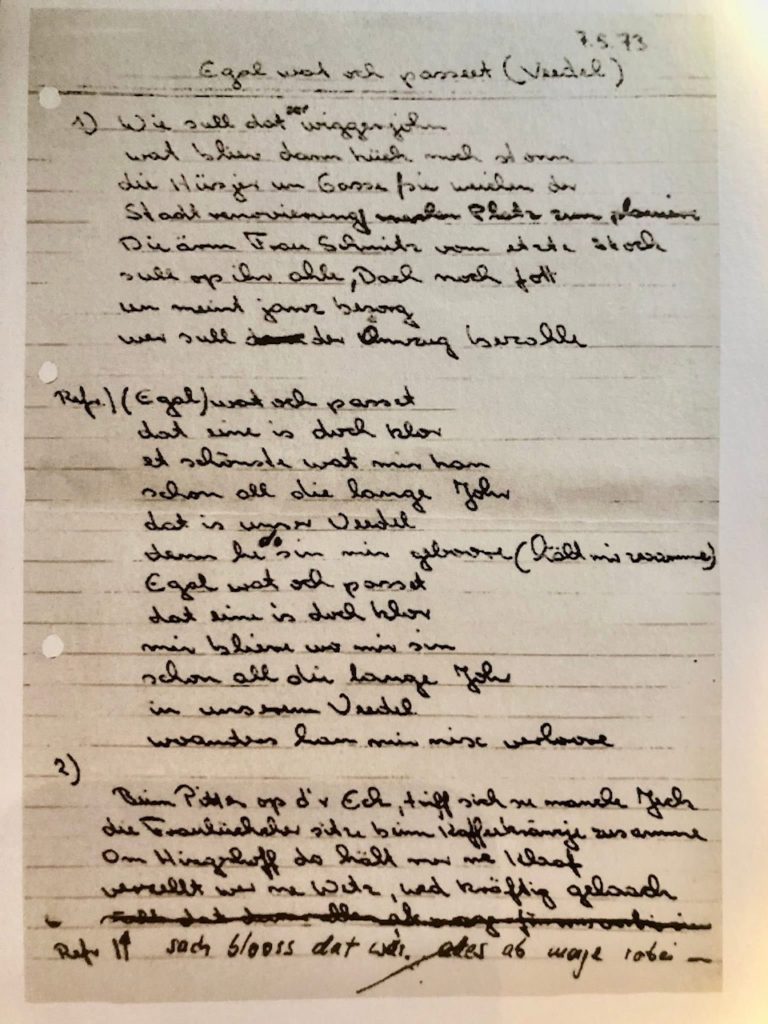 7.5.73
Egal wat och passeet (Veedel)
1) Wie sull dat wiggerjohn
wat bliev dann hück noch stonn
die Hüsjer un Gasse
Stadtrenovierung Platz zum
Die ärm Frau Schmitz vom etzte Stock
sull op ihr ahle Dach noch fott
un meint janz besorg
wer sull der Umzug bezahle
Refr.) (Egal) wat och passet
dat eine is doch klor
et schönste wat mir han
schon all die lange Johr
dat is unser Veedel
denn he sin mir geboore (hält mir zesamme)
Egal wat och passet
dat eine is doch klor
mir blieve wo mir sin
schon all die lange Johr
in unserem Veedel
woanders han mir nix verloore
2)
Beim Pitter op d'r Eck, triff sich su manche Jeck
die sitze beim Kaffeekränzje zesamme
Om Hingerhoff do hält mer ne Klaaf
verzellt wer ne Witz, wed kräftig gelaach
Refr 1) sach blooss dat wär alles ab